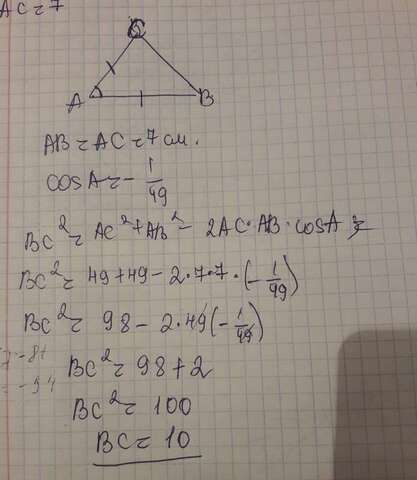 AC = 7
C
A
B
AB = AC = 7 см.
cosA = - 1/49
BC² = AC² + AB² - 2AC·AB·cosA =
BC² = 49 + 49 - 2·7·7·(-1/49)
BC² = 98 - 2·49(-1/49)
BC² = 98 + 2
BC² = 100
BC = 10